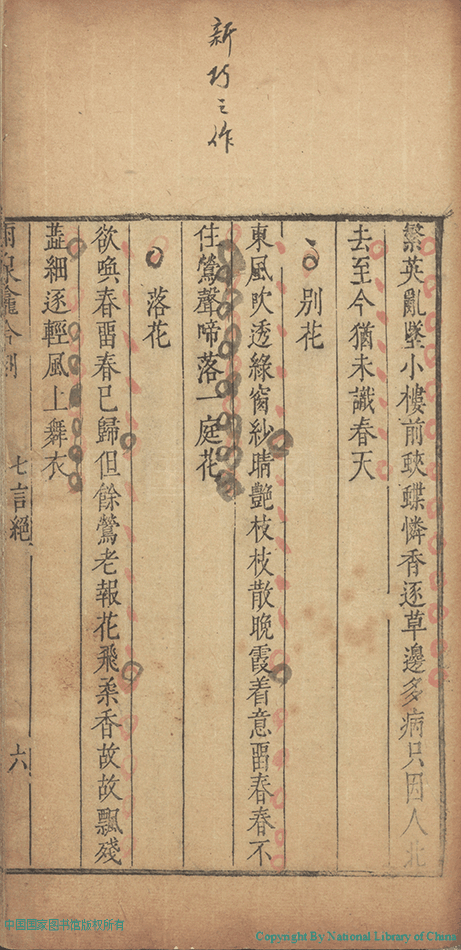 新巧之作
繁英亂墜小樓前蛺蝶憐香逐草邊多病只因人北
去至今猶未識春天
別花
東風吹透綠窗紗晴艷枝枝散晚霞着意畱春春不
住鶯聲啼落一庭花
落花
欲喚春畱春已歸但餘鶯老報花飛柔香故故飄殘
蕋細逐輕風上舞衣
七言絕
六
中国国家图书馆版权所有
Copyright By National Library of China